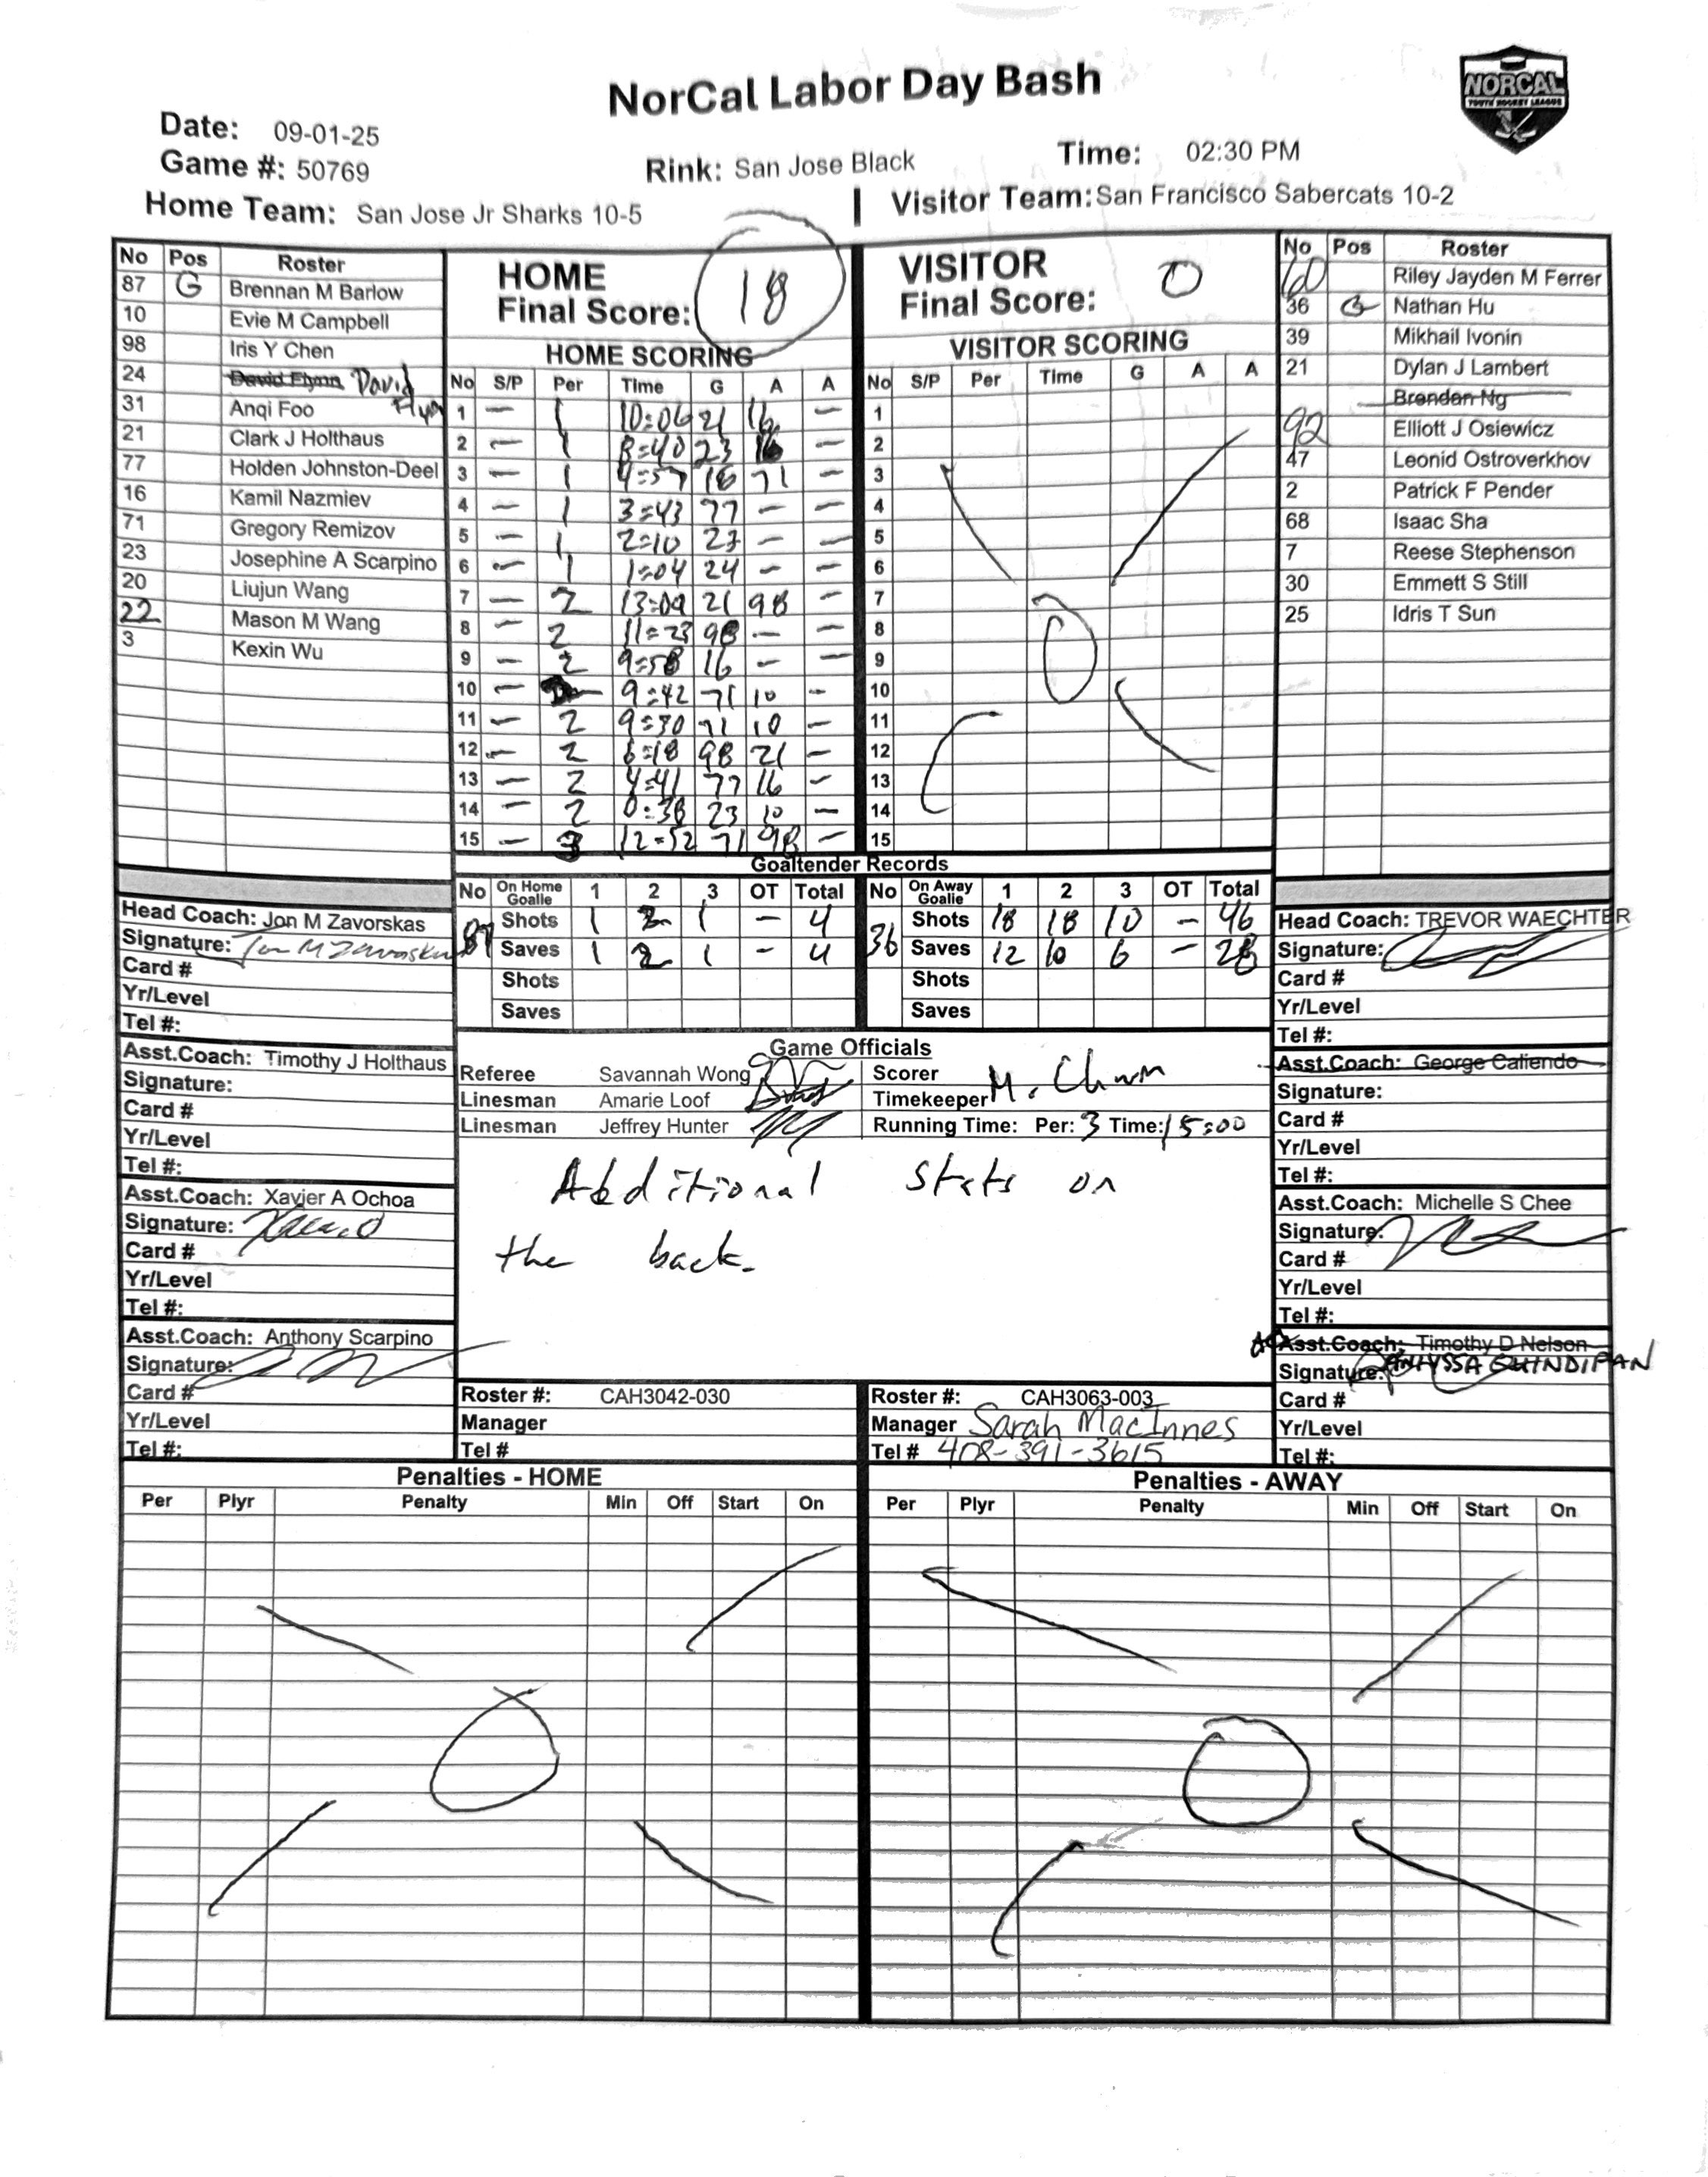 NorCal Labor Day Bash
NORCAL
YOUTH HOCKEY LEAGUE
Date: 09-01-25
Game #: 50769
Rink: San Jose Black
Time: 02:30 PM
Home Team: San Jose Jr Sharks 10-5
Visitor Team: San Francisco Sabercats 10-2
No Pos Roster
87 G Brennan M Barlow
10 Evie M Campbell
98 Iris Y Chen
24 David Flynn David Flynn
31 Anqi Foo
21 Clark J Holthaus
77 Holden Johnston-Deel
16 Kamil Nazmiev
71 Gregory Remizov
23 Josephine A Scarpino
20 Liujun Wang
22 Mason M Wang
3 Kexin Wu
HOME
Final Score: 18
HOME SCORING
No S/P Per Time G A A
1 — 1 10:06 21 16 —
2 — 1 8:40 23 16 —
3 — 1 4:57 16 71 —
4 — 1 3:43 77 — —
5 — 1 2:10 23 — —
6 — 1 1:04 24 — —
7 — 2 13:09 21 98 —
8 — 2 11:23 98 — —
9 — 2 9:58 16 — —
10 — 9:42 71 10 —
11 — 2 9:30 71 10 —
12 — 2 6:18 98 21 —
13 — 2 4:41 77 16 —
14 — 2 0:38 23 10 —
15 — 3 12:52 71 98 —
VISITOR
Final Score: 0
VISITOR SCORING
No S/P Per Time G A A
1
2
3
4
5
6
7
8
9
10
11
12
13
14
15
0
No Pos Roster
60 Riley Jayden M Ferrer
36 G Nathan Hu
39 Mikhail Ivonin
21 Dylan J Lambert
Brendan Ng
92 Elliott J Osiewicz
47 Leonid Ostroverkhov
2 Patrick F Pender
68 Isaac Sha
7 Reese Stephenson
30 Emmett S Still
25 Idris T Sun
Goaltender Records
No On Home Goalie 1 2 3 OT Total
87 Shots 1 2 1 — 4
Saves 1 2 1 — 4
Shots
Saves
No On Away Goalie 1 2 3 OT Total
36 Shots 18 18 10 — 46
Saves 12 10 6 — 28
Shots
Saves
Head Coach: Jon M Zavorskas
Signature: Jon M Zavorskas
Card #
Yr/Level
Tel #:
Asst.Coach: Timothy J Holthaus
Signature:
Card #
Yr/Level
Tel #:
Asst.Coach: Xavier A Ochoa
Signature:
Card #
Yr/Level
Tel #:
Asst.Coach: Anthony Scarpino
Signature:
Card #
Yr/Level
Tel #:
Game Officials
Referee Savannah Wong
Linesman Amarie Loof
Linesman Jeffrey Hunter
Scorer
Timekeeper
Running Time: Per: 3 Time: 15:00
Additional stats on
the back.
Roster #: CAH3042-030
Manager
Tel #
Roster #: CAH3063-003
Manager Sarah MacInnes
Tel # 408-391-3615
Head Coach: TREVOR WAECHTER
Signature:
Card #
Yr/Level
Tel #:
Asst.Coach: George Caliendo
Signature:
Card #
Yr/Level
Tel #:
Asst.Coach: Michelle S Chee
Signature:
Card #
Yr/Level
Tel #:
Asst.Coach: Timothy D Nelson
Signature:
Card #
Yr/Level
Tel #:
Penalties - HOME
Per Plyr Penalty Min Off Start On
0
Penalties - AWAY
Per Plyr Penalty Min Off Start On
0